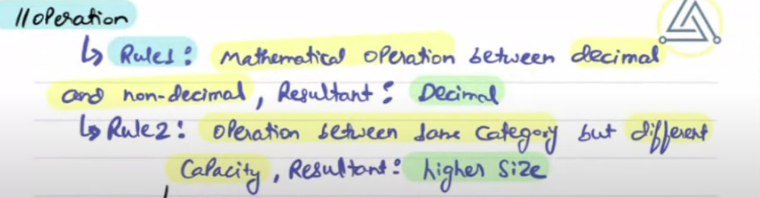 //Operation
↳ Rule1: Mathematical operation between decimal
and non-decimal, Resultant: Decimal
↳ Rule2: operation between same Category but different
Capacity, Resultant: higher Size